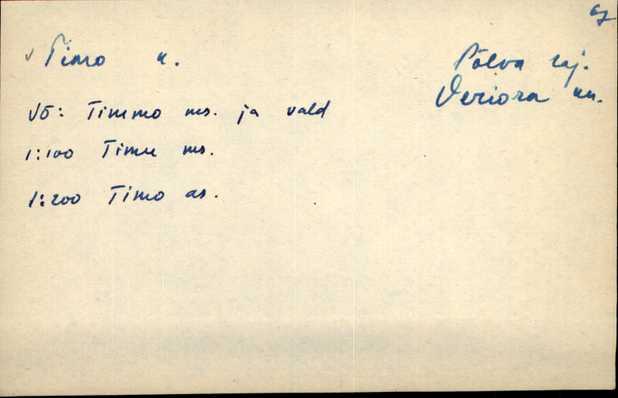 Timo k.
Põlva raj.
Veriora kn.
VÕ: Timmo ms. ja vald
1:100 Timu ms.
1:200 Timo as.